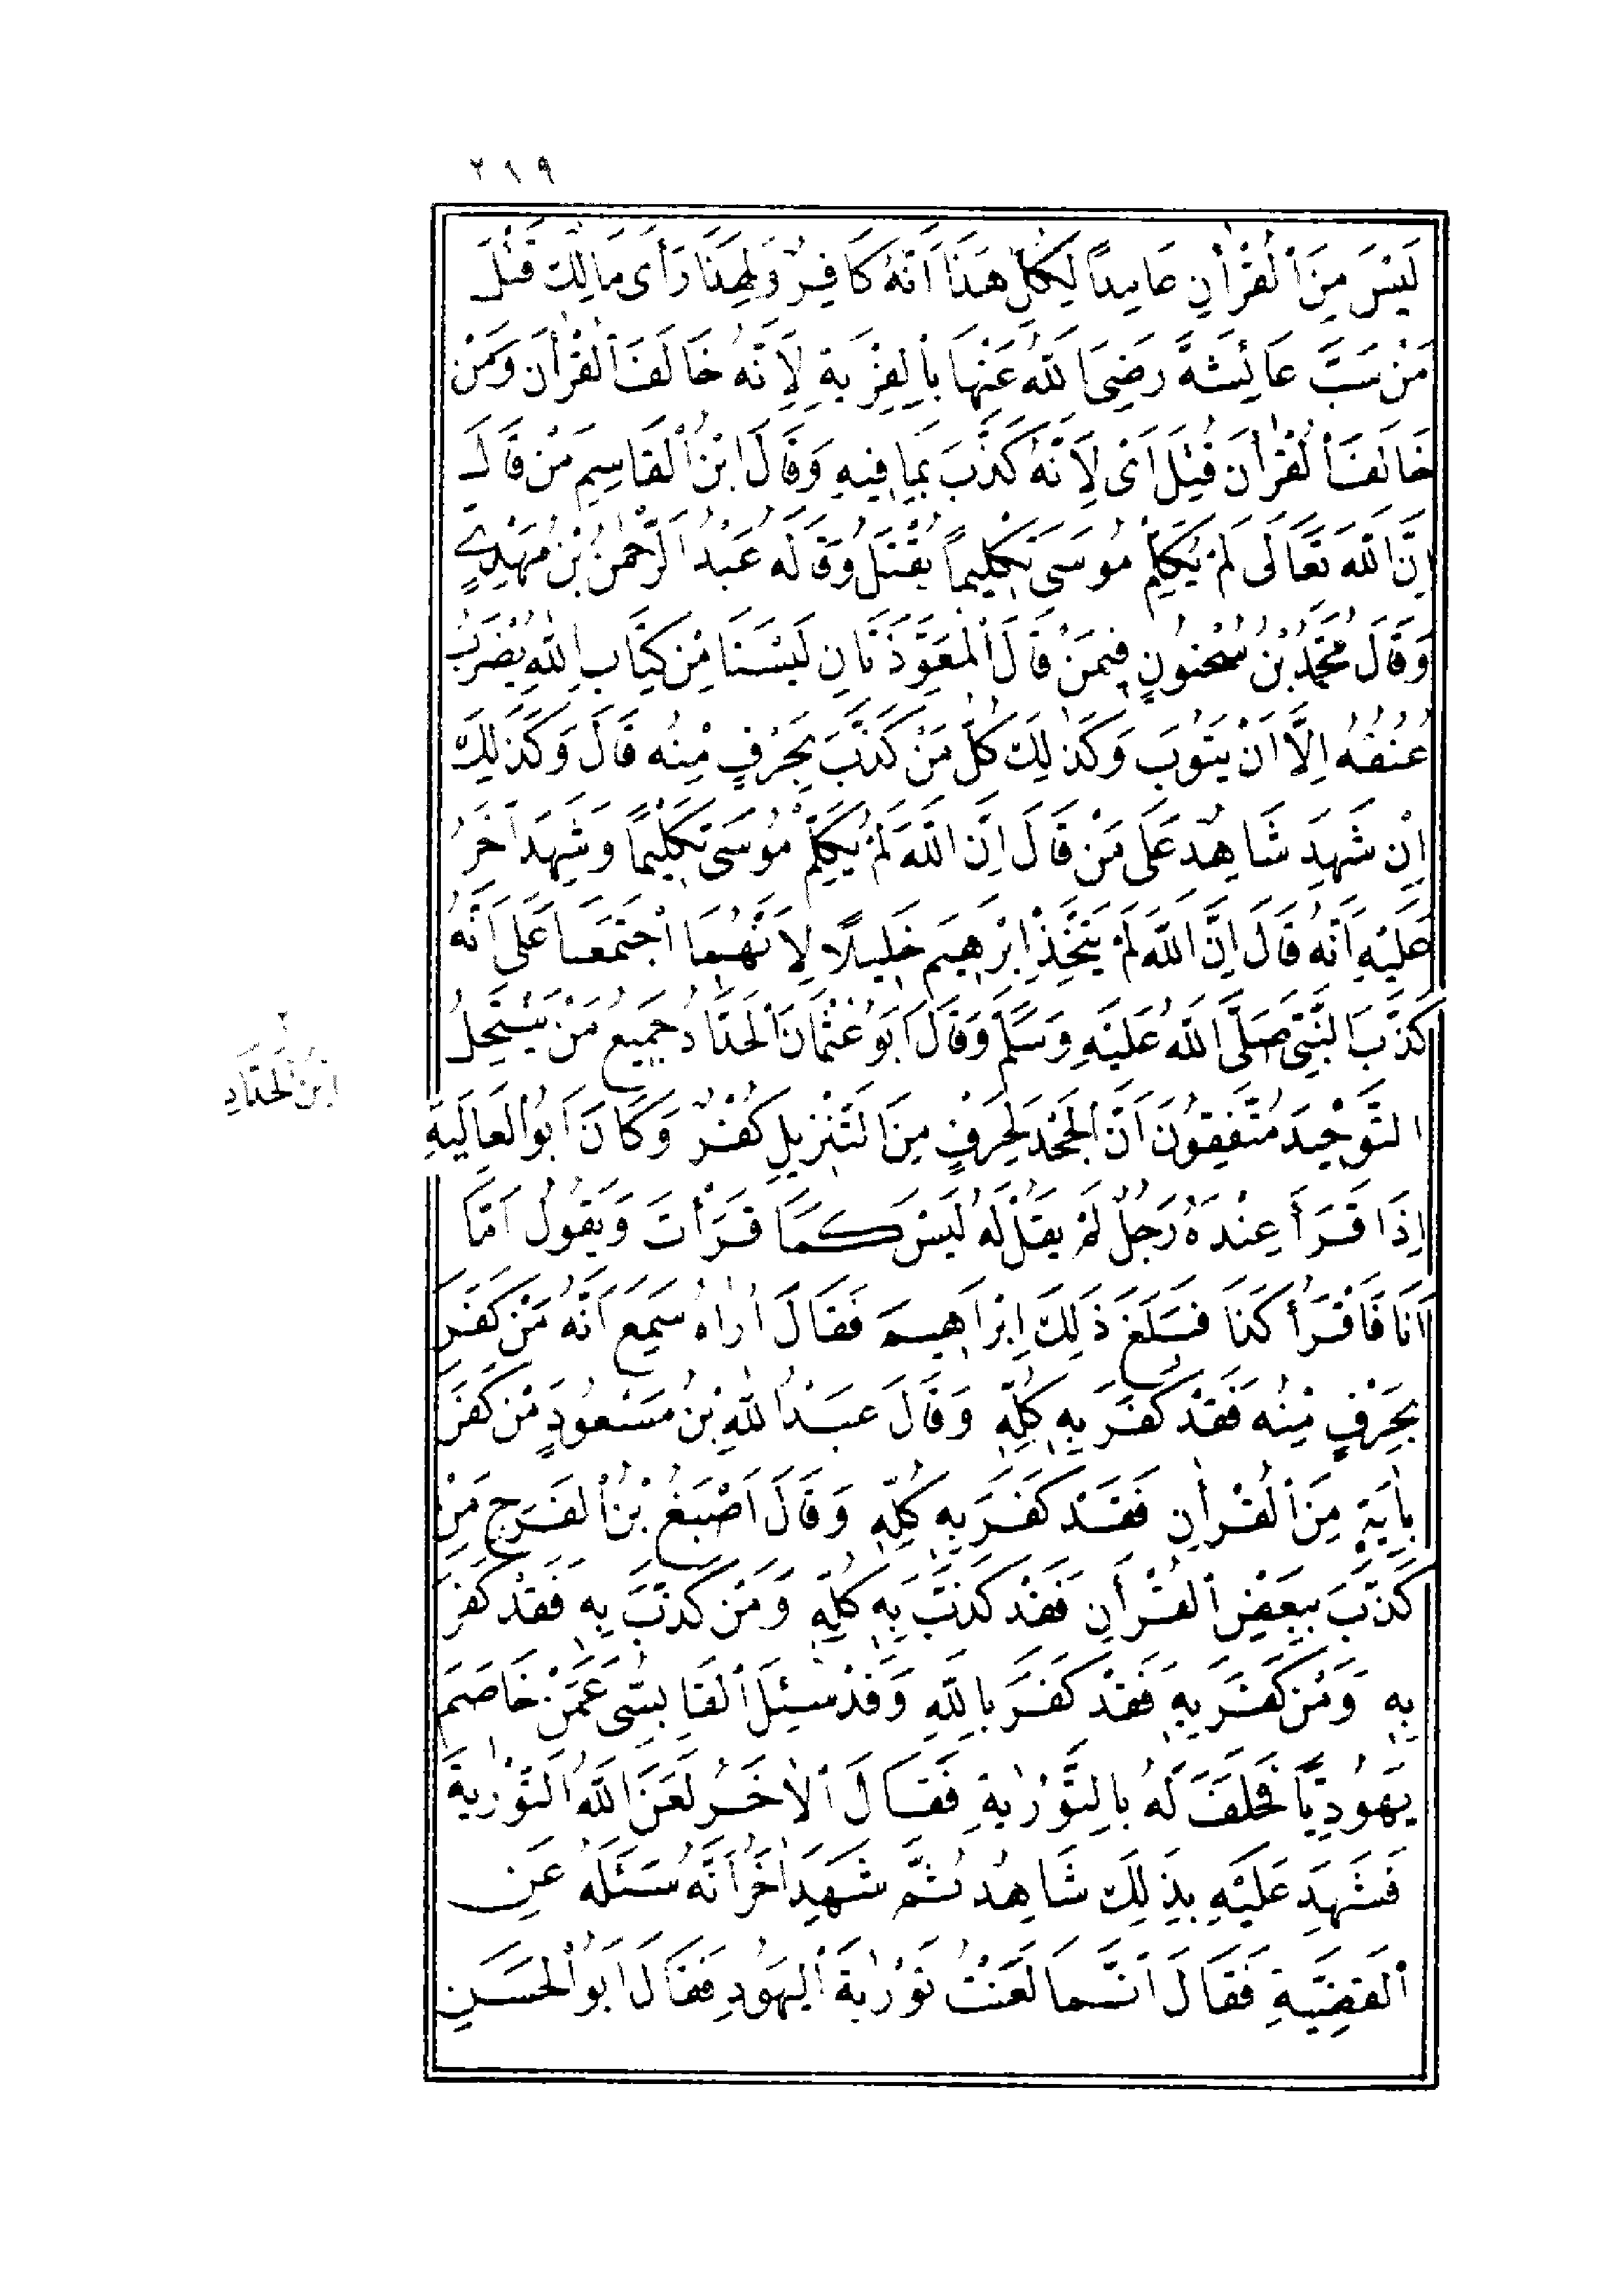 ٢١٩
لَيْسَ مِنَ ٱلْقُرْاٰنِ عَامِداً لِكُلِّ هٰذَا اَنَّهُ كَافِرٌ وَلِهٰذَا رَاَى مَالِكٌ قَتْلَ
مَنْ سَبَّ عَائِشَةَ رَضِىَ اللّٰهُ عَنْهَا بِالْفِرْيَةِ لِاَنَّهُ خَالَفَ ٱلْقُرْاٰنَ وَمَنْ
خَالَفَ ٱلْقُرْاٰنَ قُتِلَ اَىْ لِاَنَّهُ كَذَّبَ بِمَا فِيهِ وَقَالَ ابْنُ ٱلْقَاسِمِ مَنْ قَالَ
اِنَّ اللّٰهَ تَعَالَى لَمْ يُكَلِّمْ مُوسَى تَكْلِيماً يُقْتَلُ وَقَالَهُ عَبْدُ الرَّحْمٰنِ بْنُ مَهْدِيٍّ
وَقَالَ مُحَمَّدُ بْنُ سُحْنُونٍ فِيمَنْ قَالَ ٱلْمُعَوِّذَتَانِ لَيْسَتَا مِنْ كِتَابِ اللّٰهِ يُضْرَبُ
عُنُقُهُ اِلَّا اَنْ يَتُوبَ وَكَذٰلِكَ كُلُّ مَنْ كَذَّبَ بِحَرْفٍ مِنْهُ قَالَ وَكَذٰلِكَ
اِنْ شَهِدَ شَاهِدٌ عَلَى مَنْ قَالَ اِنَّ اللّٰهَ لَمْ يُكَلِّمْ مُوسَى تَكْلِيمًا وَشَهِدَ اٰخَرُ
عَلَيْهِ اَنَّهُ قَالَ اِنَّ اللّٰهَ لَمْ يَتَّخِذْ اِبْرٰهِيمَ خَلِيلًا لِاَنَّهُمَا اجْتَمَعَا عَلَى اَنَّهُ
كَذَّبَ النَّبِىَّ صَلَّى اللّٰهُ عَلَيْهِ وَسَلَّمَ وَقَالَ اَبُو عُثْمَانَ ٱلْحَدَّادُ جَمِيعُ مَنْ يَنْتَحِلُ
التَّوْحِيدَ مُتَّفِقُونَ اَنَّ ٱلْجَحْدَ لِحَرْفٍ مِنَ التَّنْزِيلِ كُفْرٌ وَكَانَ اَبُو ٱلْعَالِيَةِ
اِذَا قَرَأَ عِنْدَهُ رَجُلٌ لَمْ يَقُلْ لَهُ لَيْسَ كَمَا قَرَأْتَ وَيَقُولُ اَمَّا
اَنَا فَاَقْرَأُ كَذَا فَبَلَغَ ذٰلِكَ اِبْرَاهِيمَ فَقَالَ اُرَاهُ سَمِعَ اَنَّهُ مَنْ كَفَرَ
بِحَرْفٍ مِنْهُ فَقَدْ كَفَرَ بِهِ كُلِّهِ وَقَالَ عَبْدُ اللّٰهِ بْنُ مَسْعُودٍ مَنْ كَفَرَ
بِاٰيَةٍ مِنَ ٱلْقُرْاٰنِ فَقَدْ كَفَرَ بِهِ كُلِّهِ وَقَالَ اَصْبَغُ بْنُ ٱلْفَرَجِ مَنْ
كَذَّبَ بِبَعْضِ ٱلْقُرْاٰنِ فَقَدْ كَذَّبَ بِهِ كُلِّهِ وَمَنْ كَذَّبَ بِهِ فَقَدْ كَفَرَ
بِهِ وَمَنْ كَفَرَ بِهِ فَقَدْ كَفَرَ بِاللّٰهِ وَقَدْ سُئِلَ ٱلْقَابِسِىُّ عَمَّنْ خَاصَمَ
يَهُودِيًّا فَحَلَفَ لَهُ بِالتَّوْرٰيةِ فَقَالَ ٱلْاٰخَرُ لَعَنَ اللّٰهُ التَّوْرٰيةَ
فَشَهِدَ عَلَيْهِ بِذٰلِكَ شَاهِدٌ ثُمَّ شَهِدَ اٰخَرُ اَنَّهُ سَئَلَهُ عَنِ
ٱلْقَضِيَّةِ فَقَالَ اِنَّمَا لَعَنْتُ تَوْرٰيةَ ٱلْيَهُودِ فَقَالَ اَبُو ٱلْحَسَنِ
٢
ابْنُ الْحَدَّادِ